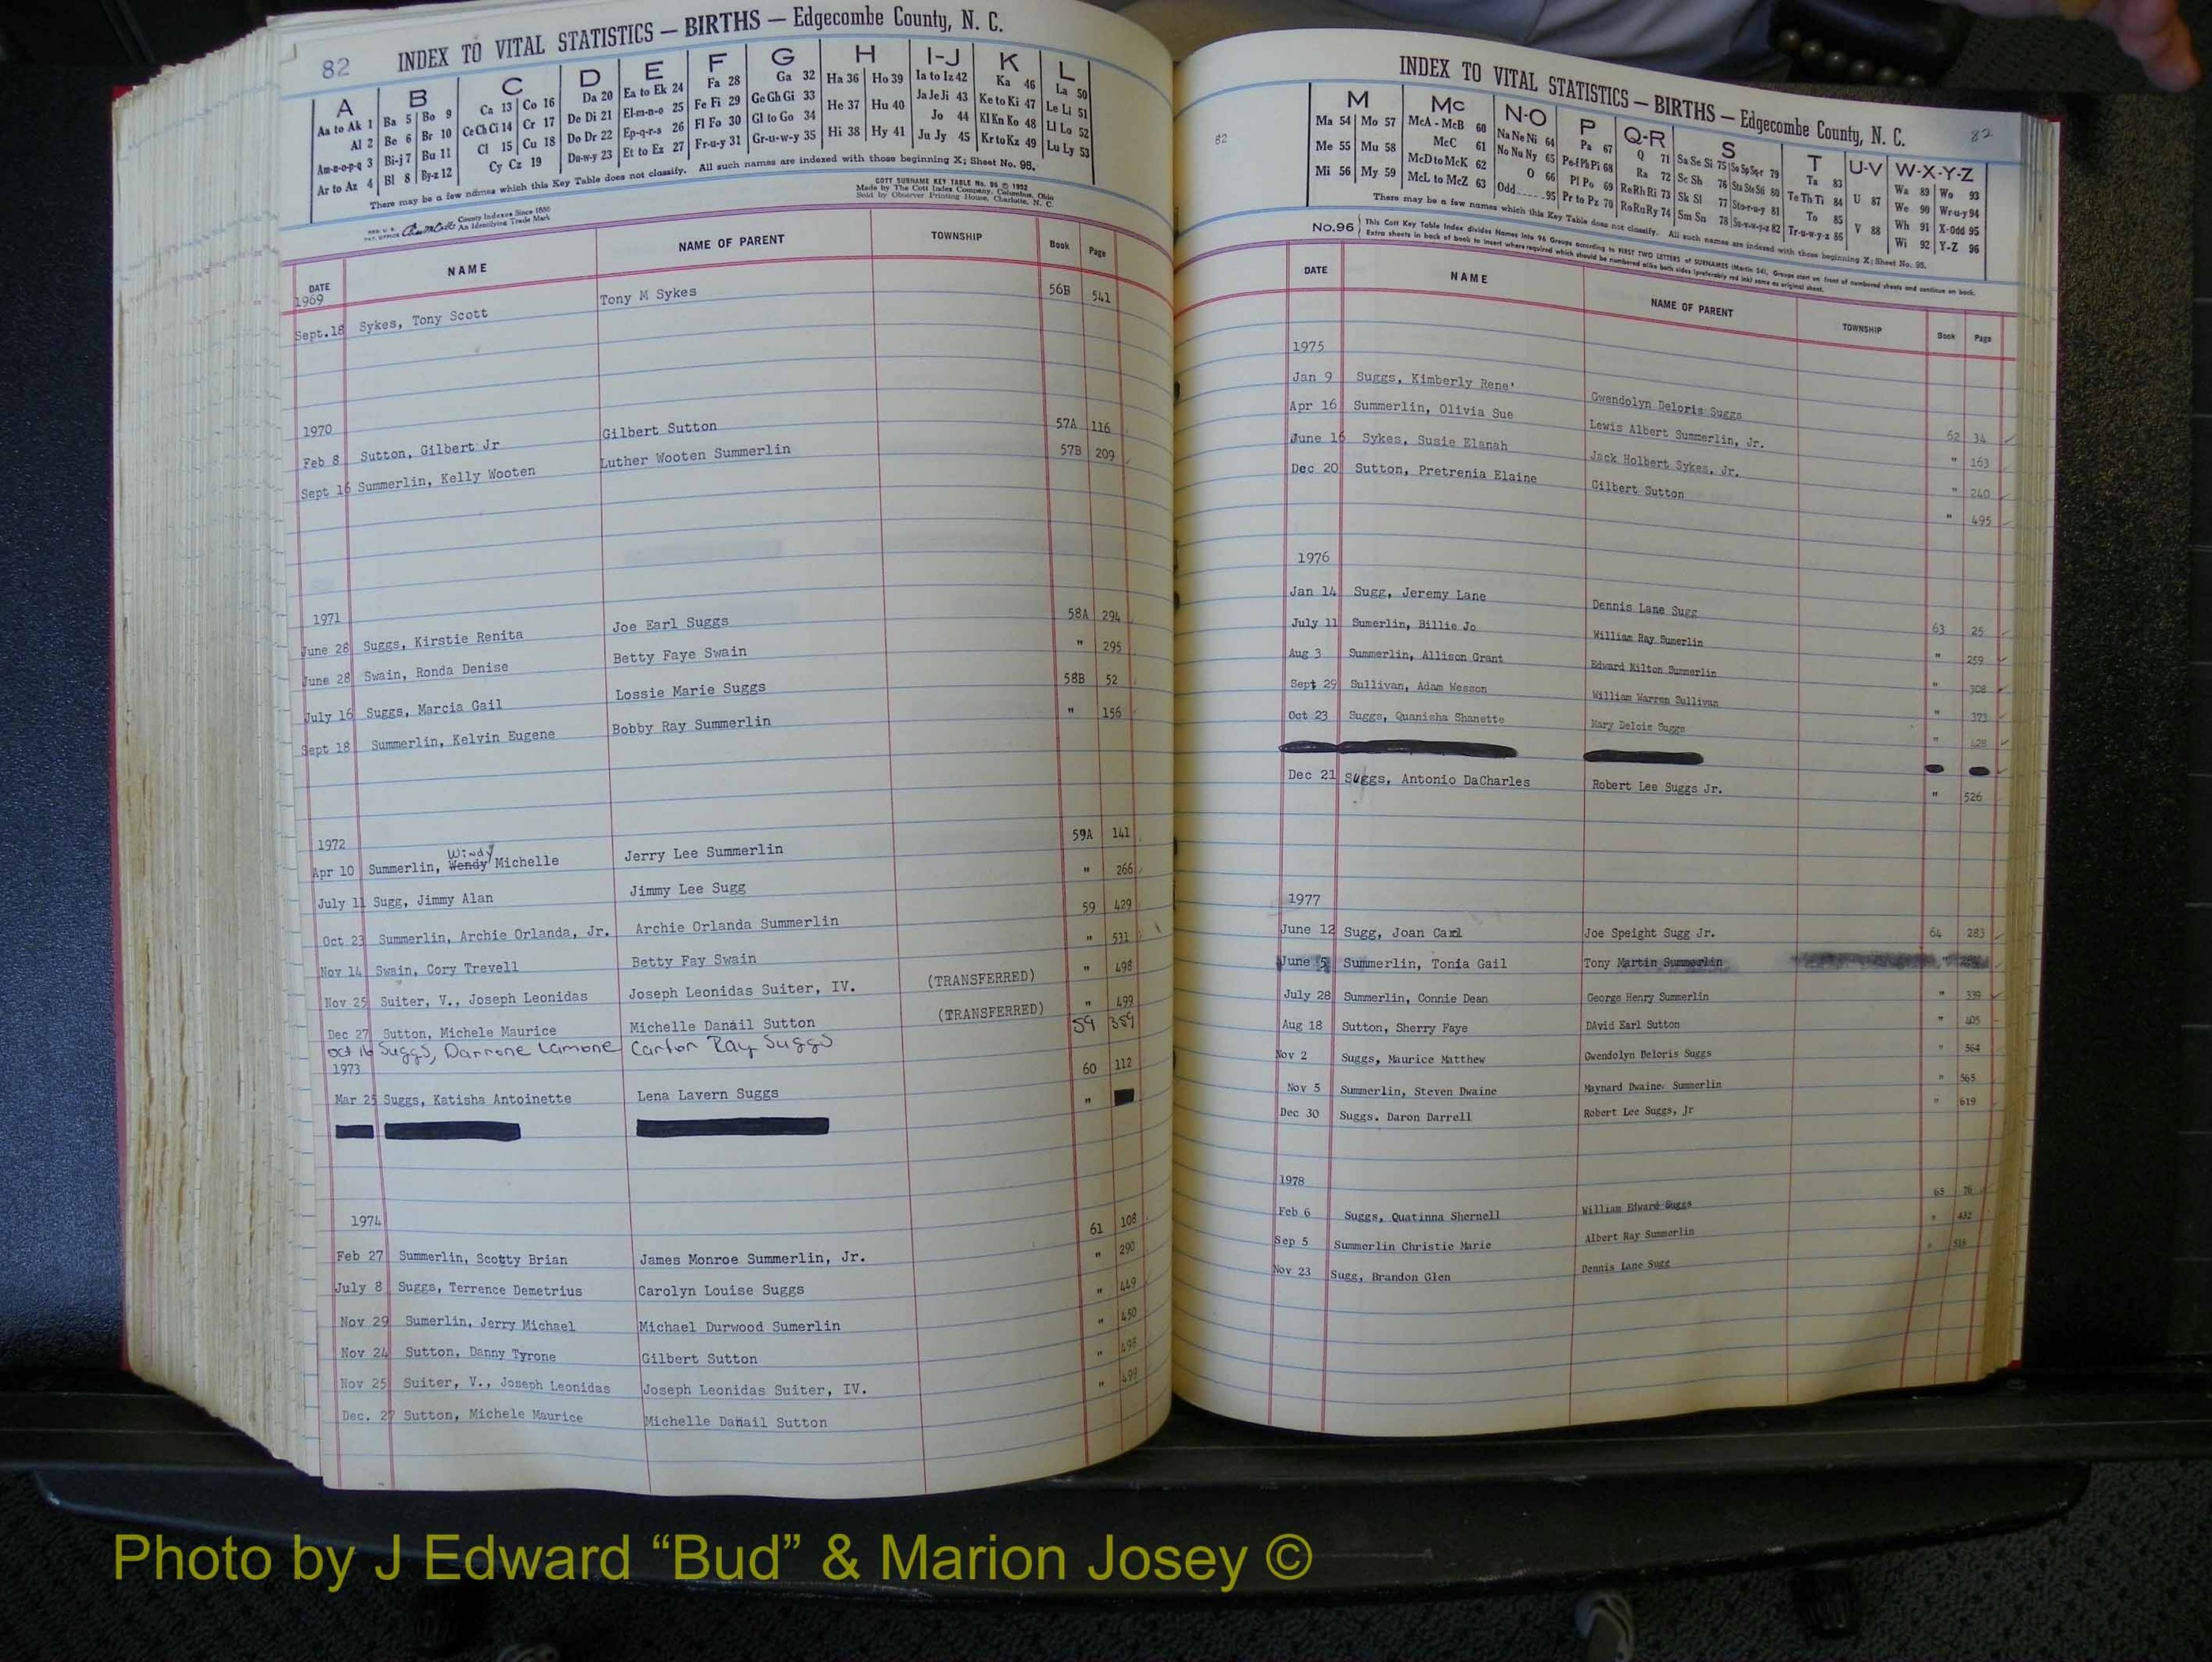 82 INDEX TO VITAL STATISTICS — BIRTHS — Edgecombe County, N. C.
A B C D E F G H I-J K L
Aa to Ak 1 Ba 5 Bo 9 Ca 13 Co 16 Da 20 Ea to Ek 24 Fa 28 Ga 32 Ha 36 Ho 39 Ia to Iz 42 Ka 46 La 50
Al 2 Be 6 Br 10 Ce Ch Ci 14 Cr 17 De Di 21 El-m-n-o 25 Fe Fi 29 Ge Gh Gi 33 He 37 Hu 40 Ja Je Ji 43 Ke to Ki 47 Le Li 51
Am-n-o-p-q 3 Bi-j 7 Bu 11 Cl 15 Cu 18 Do Dr 22 Ep-q-r-s 26 Fl Fo 30 Gl to Go 34 Hi 38 Hy 41 Jo 44 Kl Kn Ko 48 Ll Lo 52
Ar to Az 4 Bl 8 By-z 12 Cy Cz 19 Du-w-y 23 Et to Ez 27 Fr-u-y 31 Gr-u-w-y 35 Ju Jy 45 Kr to Kz 49 Lu Ly 53
There may be a few names which this Key Table does not classify. All such names are indexed with those beginning X; Sheet No. 95.
COTT SURNAME KEY TABLE No. 96 © 1952
Made by The Cott Index Company, Columbus, Ohio
Sold by Observer Printing House, Charlotte, N. C.
County Indexes Since 1888
An Identifying Trade Mark
DATE NAME NAME OF PARENT TOWNSHIP Book Page
1969
Sept.18 Sykes, Tony Scott Tony M Sykes 56B 541
1970
Feb 8 Sutton, Gilbert Jr Gilbert Sutton 57A 116
Sept 16 Summerlin, Kelly Wooten Luther Wooten Summerlin 57B 209
1971
June 28 Suggs, Kirstie Renita Joe Earl Suggs 58A 294
June 28 Swain, Ronda Denise Betty Faye Swain " 295
July 16 Suggs, Marcia Gail Lossie Marie Suggs 58B 52
Sept 18 Summerlin, Kelvin Eugene Bobby Ray Summerlin " 156
1972
Windy
Apr 10 Summerlin, Wendy Michelle Jerry Lee Summerlin 59A 141
July 11 Sugg, Jimmy Alan Jimmy Lee Sugg " 266
Oct 23 Summerlin, Archie Orlanda, Jr. Archie Orlanda Summerlin 59 429
Nov 14 Swain, Cory Trevell Betty Fay Swain " 531
Nov 25 Suiter, V., Joseph Leonidas Joseph Leonidas Suiter, IV. (TRANSFERRED) " 498
Dec 27 Sutton, Michele Maurice Michelle Danail Sutton (TRANSFERRED) " 499
Oct 16 Suggs, Darrone Lamone Carlton Ray Suggs 59 359
1973
Mar 25 Suggs, Katisha Antoinette Lena Lavern Suggs 60 112
"
1974
Feb 27 Summerlin, Scotty Brian James Monroe Summerlin, Jr. 61 108
July 8 Suggs, Terrence Demetrius Carolyn Louise Suggs " 290
Nov 29 Sumerlin, Jerry Michael Michael Durwood Sumerlin " 449
Nov 24 Sutton, Danny Tyrone Gilbert Sutton " 450
Nov 25 Suiter, V., Joseph Leonidas Joseph Leonidas Suiter, IV. " 498
Dec. 27 Sutton, Michele Maurice Michelle Danail Sutton " 499
82 INDEX TO VITAL STATISTICS — BIRTHS — Edgecombe County, N. C. 82
M Mc N-O P Q-R S T U-V W-X-Y-Z
Ma 54 Mo 57 McA - McB 60 Na Ne Ni 64 Pa 67 Q 71 Sa Se Si 75 So Sp Sq-r 79 Ta 83 U 87 Wa 89 Wo 93
Me 55 Mu 58 McC 61 No Nu Ny 65 Pe-f Ph Pi 68 Ra 72 Sc Sh 76 Sta Ste Sti 80 Te Th Ti 84 We 90 Wr-u-y 94
Mi 56 My 59 McD to McK 62 O 66 Pl Po 69 Re Rh Ri 73 Sk Sl 77 Sto-r-u-y 81 To 85 V 88 Wh 91 X-Odd 95
McL to McZ 63 Odd 95 Pr to Pz 70 Ro Ru Ry 74 Sm Sn 78 Su-v-w-y-z 82 Tr-u-w-y-z 86 Wi 92 Y-Z 96
There may be a few names which this Key Table does not classify. All such names are indexed with those beginning X; Sheet No. 95.
No. 96 This Cott Key Table Index divides Names into 96 Groups according to FIRST TWO LETTERS of SURNAMES (Martin 54). Groups start on front of numbered sheets and continue on back.
Extra sheets in back of book to insert where required which should be numbered alike both sides (preferably red ink) same as original sheet.
DATE NAME NAME OF PARENT TOWNSHIP Book Page
1975
Jan 9 Suggs, Kimberly Rene' Gwendolyn Deloris Suggs 62 34
Apr 16 Summerlin, Olivia Sue Lewis Albert Summerlin, Jr. " 163
June 16 Sykes, Susie Elanah Jack Holbert Sykes, Jr. " 240
Dec 20 Sutton, Pretrenia Elaine Gilbert Sutton " 495
1976
Jan 14 Sugg, Jeremy Lane Dennis Lane Sugg 63 25
July 11 Sumerlin, Billie Jo William Ray Sumerlin " 259
Aug 3 Summerlin, Allison Grant Edward Milton Summerlin " 308
Sept 29 Sullivan, Adam Wesson William Warren Sullivan " 373
Oct 23 Suggs, Quanisha Shanette Mary Delois Suggs " 428
Dec 21 Suggs, Antonio DaCharles Robert Lee Suggs Jr. " 526
1977
June 12 Sugg, Joan Carol Joe Speight Sugg Jr. 64 283
June 5 Summerlin, Tonia Gail Tony Martin Summerlin "
July 28 Summerlin, Connie Dean George Henry Summerlin " 339
Aug 18 Sutton, Sherry Faye DAvid Earl Sutton " 405
Nov 2 Suggs, Maurice Matthew Gwendolyn Deloris Suggs " 564
Nov 5 Summerlin, Steven Dwaine Maynard Dwaine Summerlin " 565
Dec 30 Suggs. Daron Darrell Robert Lee Suggs, Jr " 619
1978
Feb 6 Suggs, Quatinna Shernell William Edward Suggs 65 76
Sep 5 Summerlin Christie Marie Albert Ray Summerlin " 432
Nov 23 Sugg, Brandon Glen Dennis Lane Sugg "
Photo by J Edward “Bud” & Marion Josey ©